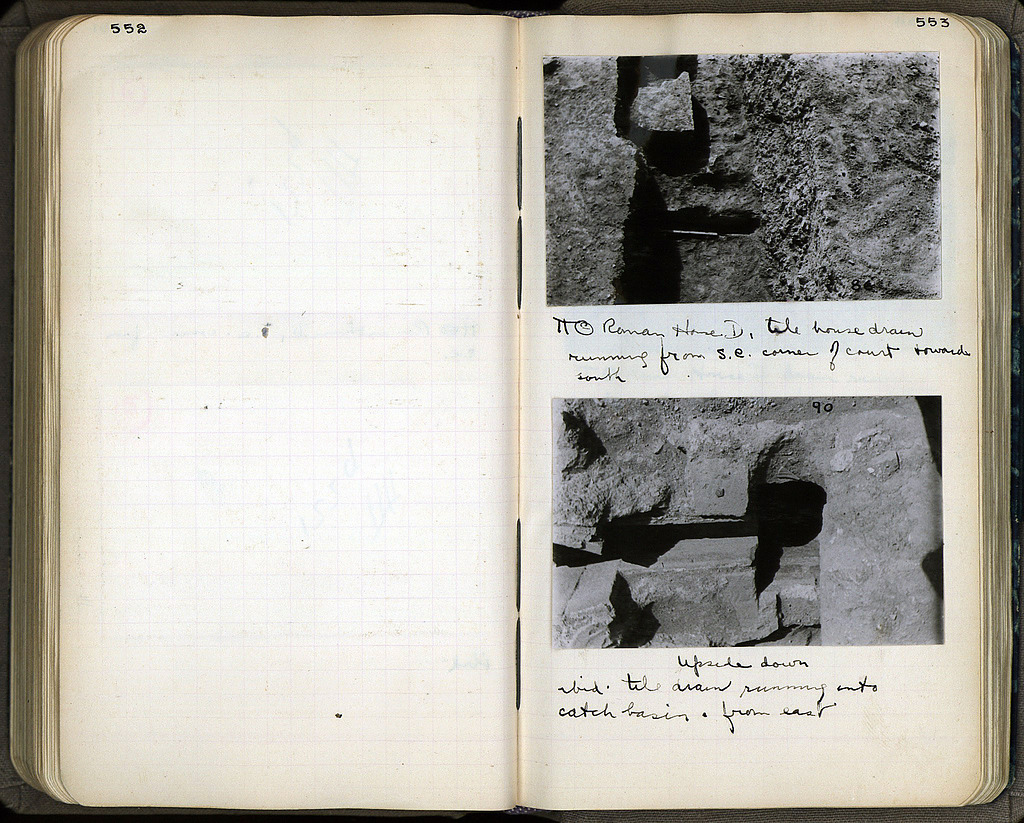 552
553
86
ΠΘ Roman House D, tile house drain
running from S.E. corner of court towards
south
90
Upside down
ibid. tile drain running into
catch basin. from east